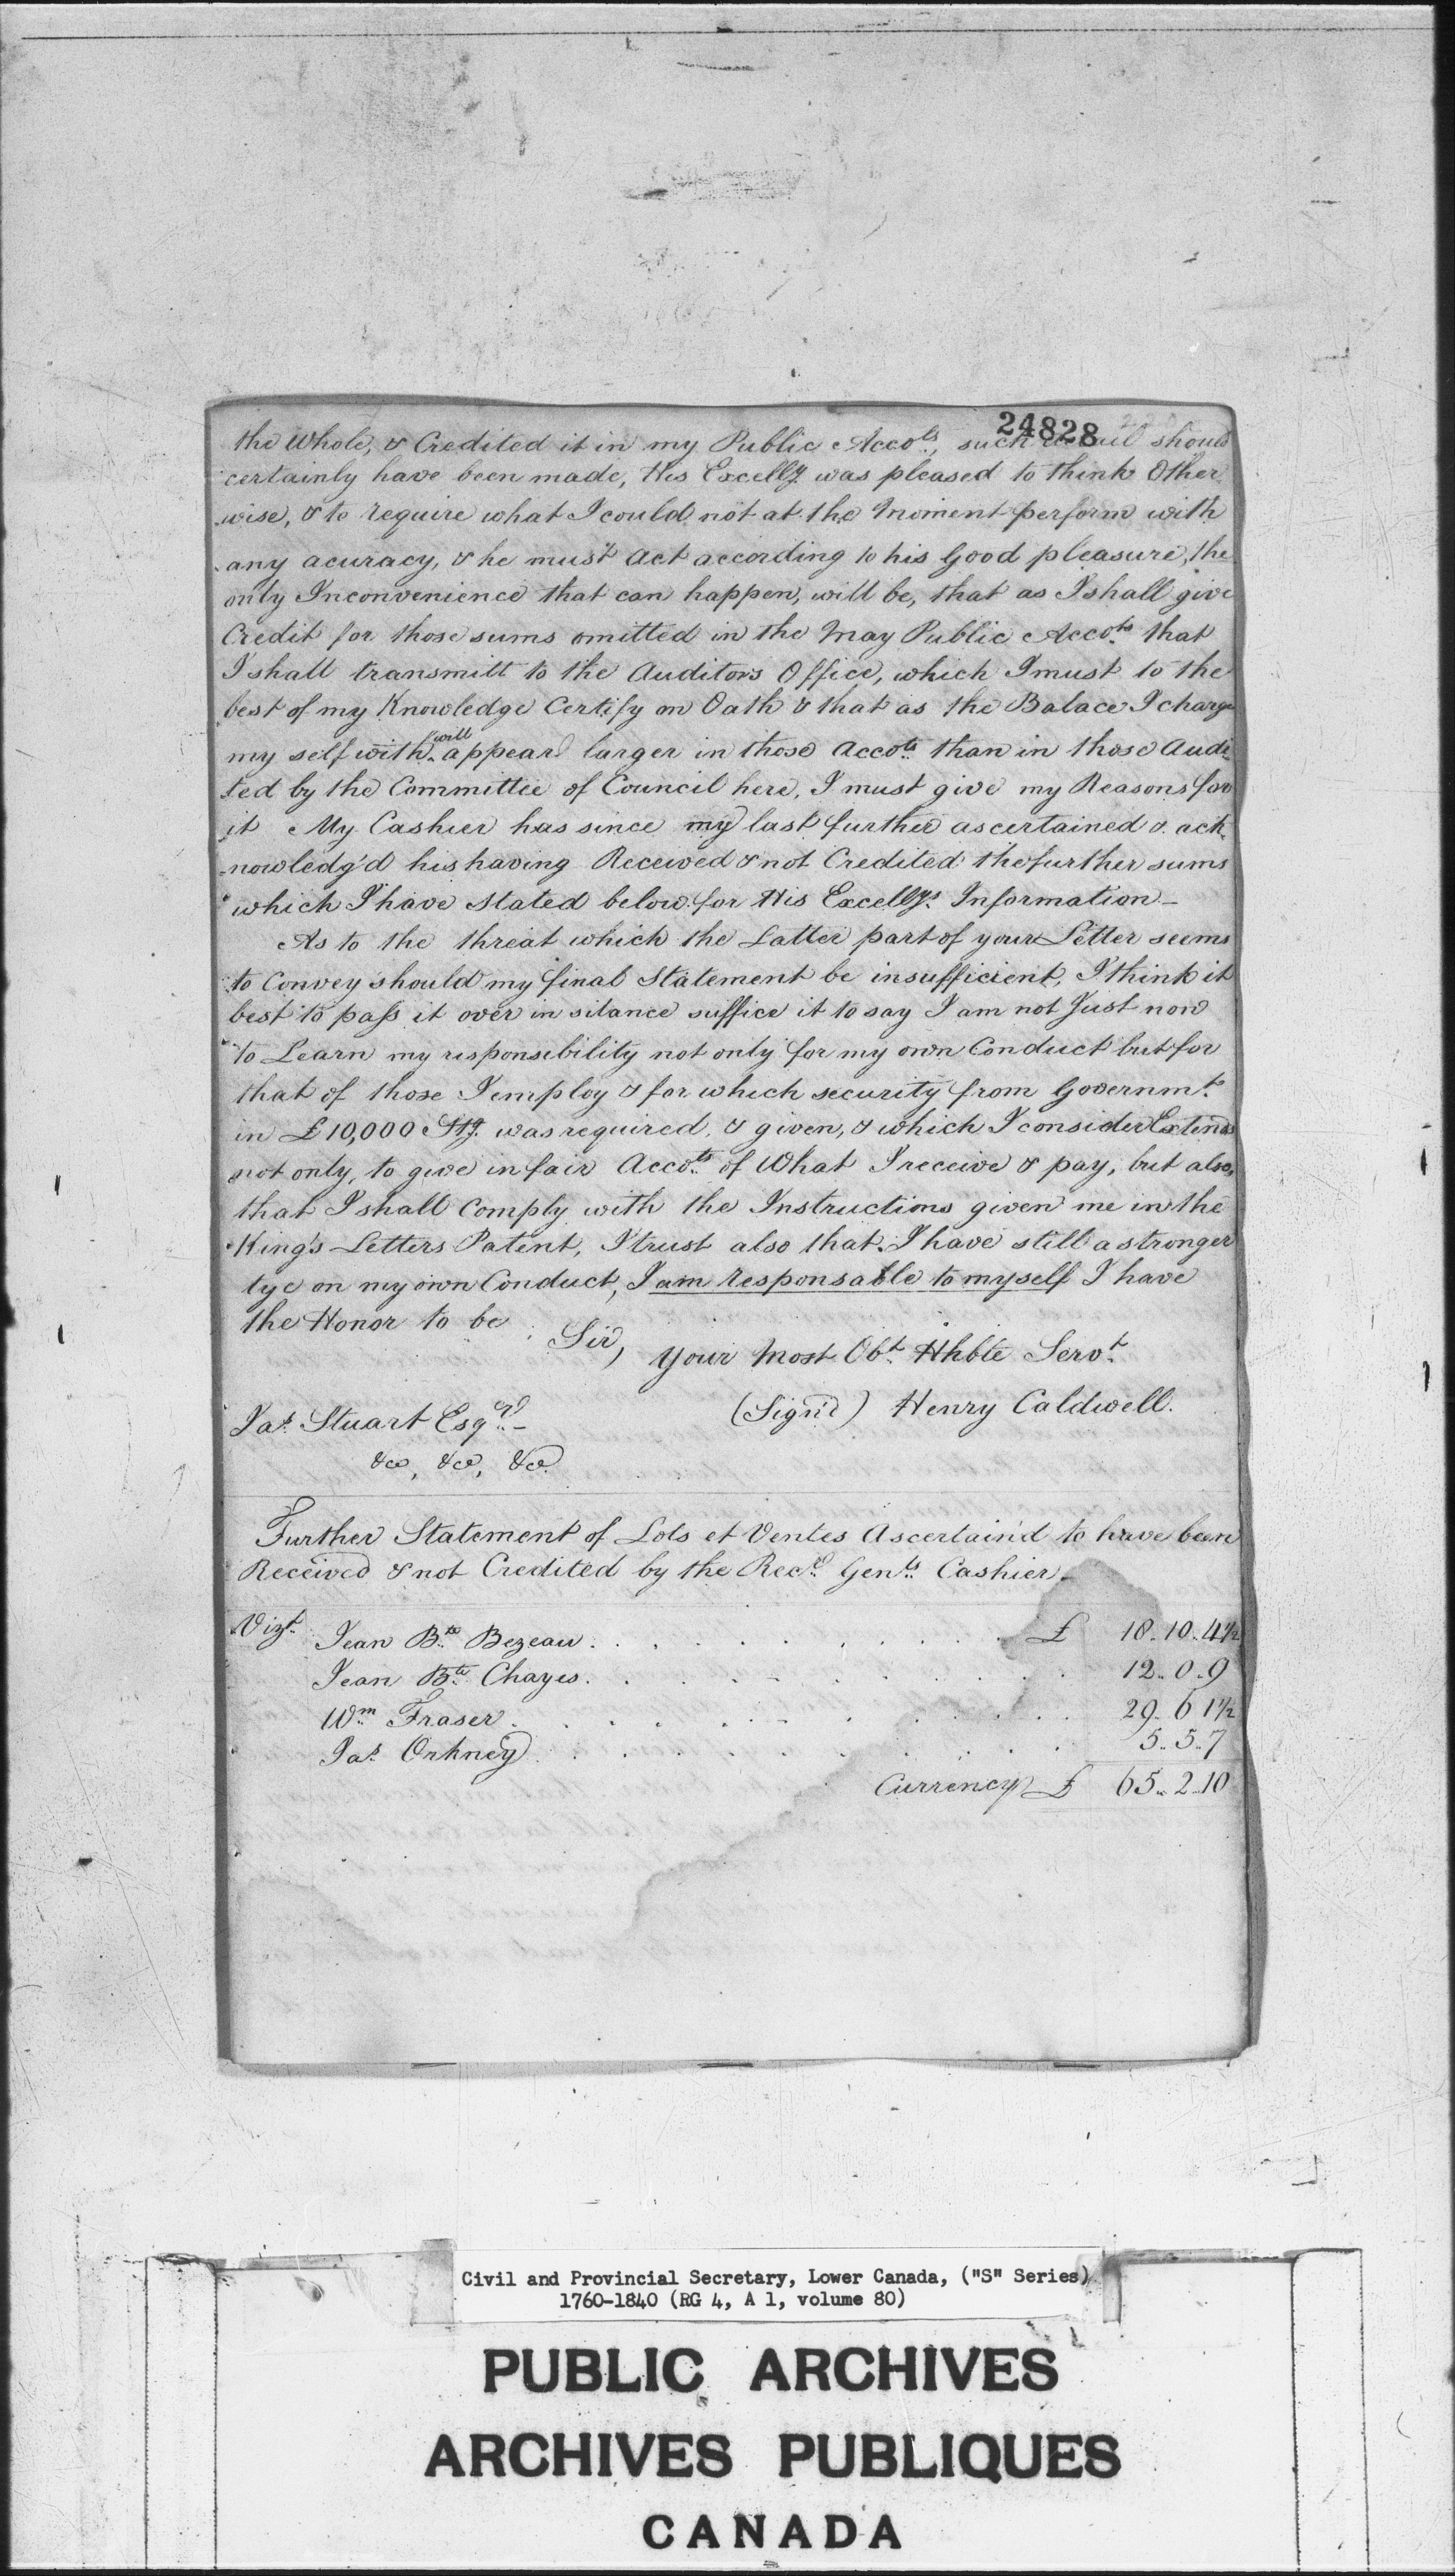 24828
the Whole, & Credited it in my Public Accots, such should
certainly have been made, His Excelly was pleased to think Other
wise, & to require what I could not at the moment perform with
any acuracy, & he must act according to his Good pleasure, the
only Inconvenience that can happen, will be, that as I shall give
Credit for those sums omitted in the May Public Accots that
I shall transmitt to the Auditors Office, which I must to the
best of my Knowledge Certify on Oath & that as the Balace I charge
my self with will appear larger in those Accots than in those Audi
ted by the Committee of Council here, I must give my Reasons for
it My Cashier has since my last further ascertained & ack
nowledg'd his having Received & not Credited the further sums
which I have stated below for His Excellys Information —
As to the threat which the Latter part of your Letter seems
to Convey should my final Statement be insufficient, I think it
best to pass it over in silance suffice it to say I am not Just now
to Learn my responsibility not only for my own Conduct but for
that of those I employ & for which security from Governmt
in £10,000 Stg. was required, & given, & which I consider Extends
not only, to give in fair Accots of What I receive & pay, but also,
that I shall Comply with the Instructions given me in the
King's Letters Patent, I trust also that I have still a stronger
tye on my own Conduct, I am responsable to myself I have
the Honor to be
Sir,
your Most Obt Hhble Servt
(Sign'd) Henry Caldwell.
Jas Stuart Esqr —
&c, &c, &c.
Further Statement of Lots et Ventes Ascertain'd to have been
Received & not Credited by the Recr Genls Cashier —
Vizt Jean Bte Bezeau . . . . . . . . . . £ 18..10..4½
Jean Bte Chayes . . . . . . . . . . 12..0..9
Wm Fraser . . . . . . . . . . 29..6 1½
Jas Orkney . . . . . . . . . . 5..5..7
Currency £ 65..2..10
Civil and Provincial Secretary, Lower Canada, ("S" Series)
1760-1840 (RG 4, A 1, volume 80)
PUBLIC ARCHIVES
ARCHIVES PUBLIQUES
CANADA